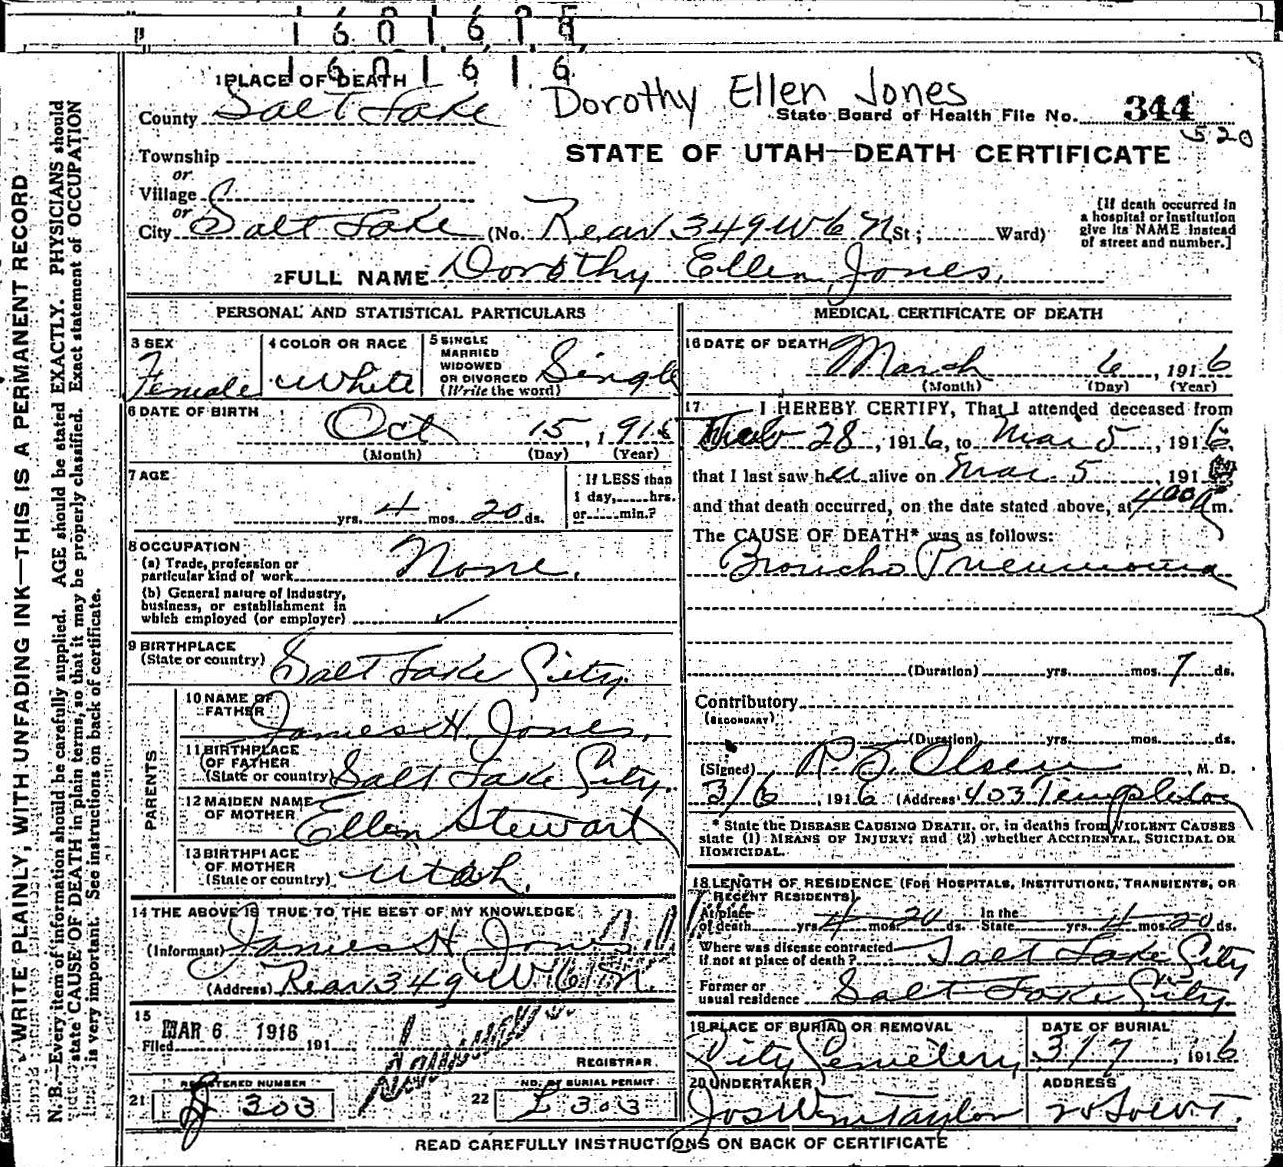 1 6 0 1 6 1 8
1 6 0 1 6 1 6
1 PLACE OF DEATH
Dorothy Ellen Jones
County Salt Lake
State Board of Health File No. 344
520
Township
or
Village
or
City Salt Lake (No. Rear 349 W 6 N St; Ward)
STATE OF UTAH—DEATH CERTIFICATE
[If death occurred in
a hospital or institution
give its NAME instead
of street and number.]
2 FULL NAME Dorothy Ellen Jones.
PERSONAL AND STATISTICAL PARTICULARS
3 SEX
Female
4 COLOR OR RACE
White
5 SINGLE
MARRIED
WIDOWED
OR DIVORCED
(Write the word)
Single
6 DATE OF BIRTH
Oct 15, 1915
(Month) (Day) (Year)
7 AGE
yrs. 4 mos. 20 ds.
If LESS than
1 day, hrs.
or min.?
8 OCCUPATION
(a) Trade, profession or
particular kind of work
None.
(b) General nature of industry,
business, or establishment in
which employed (or employer) ✓
9 BIRTHPLACE
(State or country) Salt Lake City.
PARENTS
10 NAME OF
FATHER James H. Jones.
11 BIRTHPLACE
OF FATHER
(State or country) Salt Lake City.
12 MAIDEN NAME
OF MOTHER Ellen Stewart
13 BIRTHPLACE
OF MOTHER
(State or country) Utah.
14 THE ABOVE IS TRUE TO THE BEST OF MY KNOWLEDGE
(Informant) James H Jones
(Address) Rear 349 W 6 N.
15
Filed MAR 6 1916 191
REGISTRAR
21 REGISTERED NUMBER
303
22 NO. OF BURIAL PERMIT
303
MEDICAL CERTIFICATE OF DEATH
16 DATE OF DEATH
March 6, 1916
(Month) (Day) (Year)
17 I HEREBY CERTIFY, That I attended deceased from
Feb 28, 1916, to Mar 5, 1916,
that I last saw her alive on Mar 5, 191
and that death occurred, on the date stated above, at 4 00 A m.
The CAUSE OF DEATH* was as follows:
Broncho Pneumonia
(Duration) yrs. mos. 7 ds.
Contributory
(SECONDARY)
(Duration) yrs. mos. ds.
(Signed) Olsen, M. D.
3/6, 1916 (Address) 403 Templeton
* State the DISEASE CAUSING DEATH, or, in deaths from VIOLENT CAUSES
state (1) MEANS OF INJURY; and (2) whether ACCIDENTAL, SUICIDAL OR
HOMICIDAL.
18 LENGTH OF RESIDENCE (FOR HOSPITALS, INSTITUTIONS, TRANSIENTS, OR
RECENT RESIDENTS)
At place
of death yrs. 4 mos. 20 ds. In the
State yrs. 4 mos. 20 ds.
Where was disease contracted
if not at place of death? Salt Lake City
Former or
usual residence Salt Lake City.
19 PLACE OF BURIAL OR REMOVAL
City Cemetery
DATE OF BURIAL
3/7, 1916
20 UNDERTAKER
Jos Wm Taylor
ADDRESS
READ CAREFULLY INSTRUCTIONS ON BACK OF CERTIFICATE
WRITE PLAINLY, WITH UNFADING INK—THIS IS A PERMANENT RECORD
N. B.—Every item of information should be carefully supplied. AGE should be stated EXACTLY. PHYSICIANS should
state CAUSE OF DEATH in plain terms, so that it may be properly classified. Exact statement of OCCUPATION
is very important. See instructions on back of certificate.